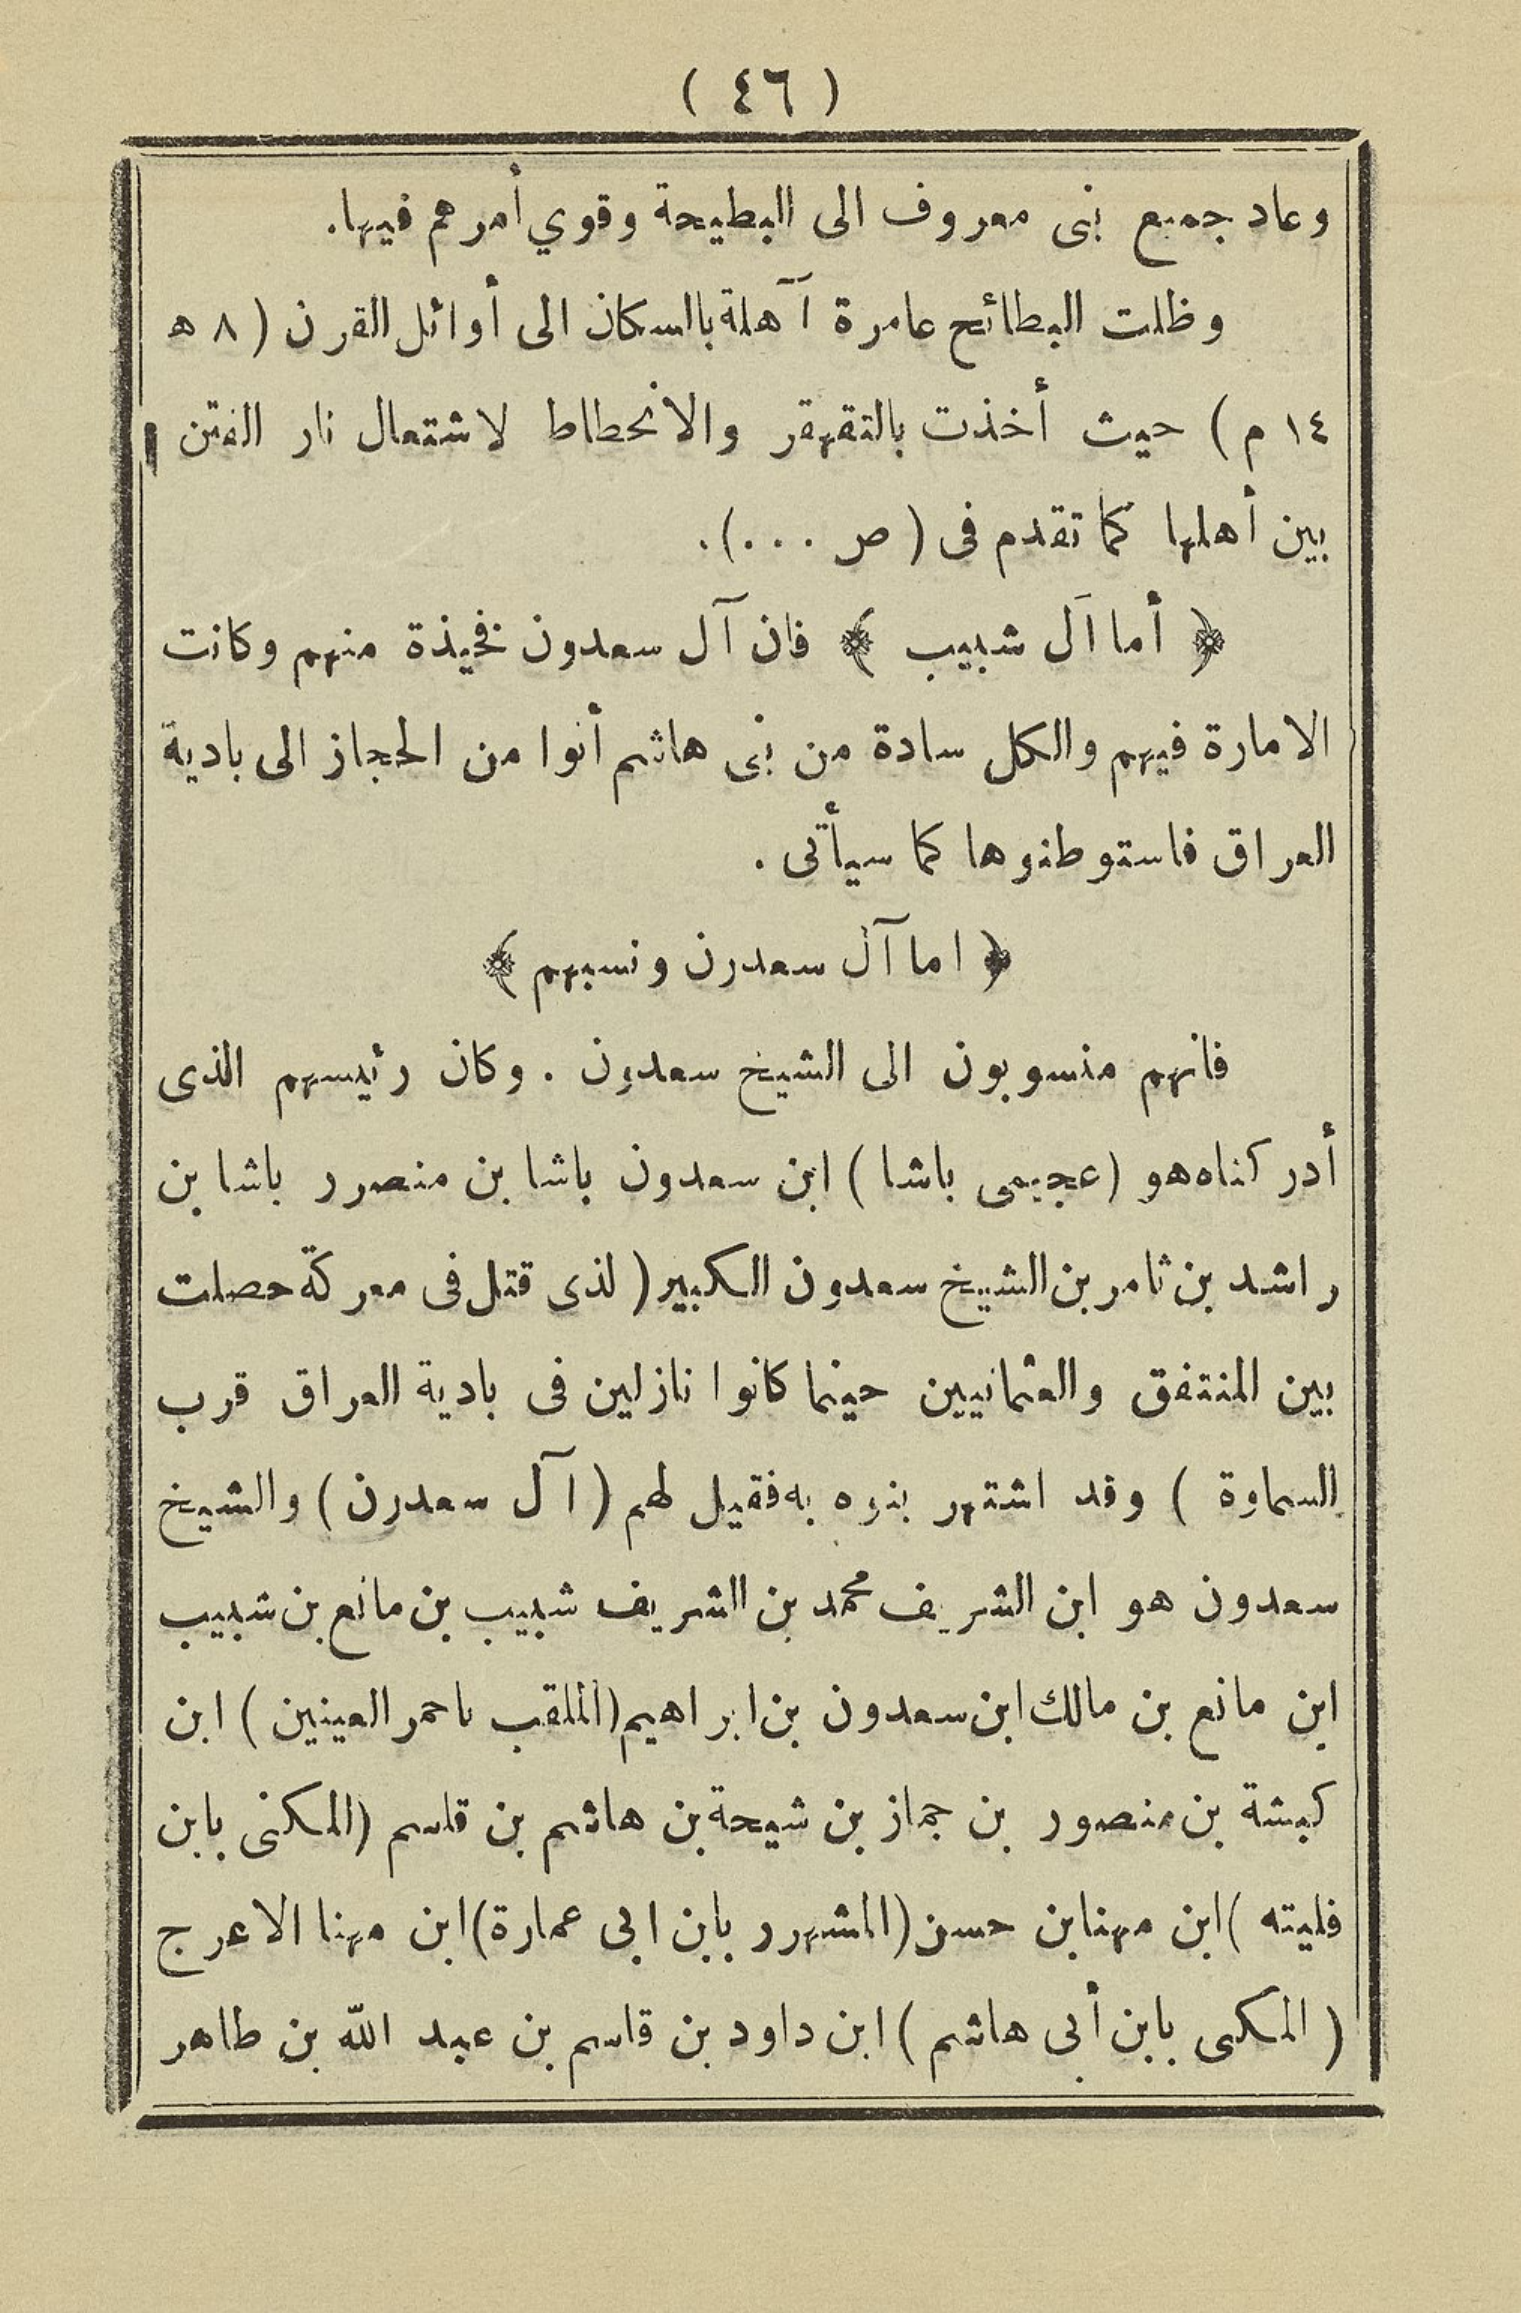 ( ٤٦ )
وعاد جميع بنى معروف الى البطيحة وقوي أمرهم فيها.
وظلت البطائح عامرة آهلة بالسكان الى أوائل القرن ( ٨ ه
١٤ م ) حيث أخذت بالتقهقر والانحطاط لاشتعال نار الفتن
بين أهلها كما تقدم فى ( ص ...).
﴿ أما آل شبيب ﴾ فان آل سعدون فخيذة منهم وكانت
الامارة فيهم والكل سادة من بنى هاشم أتوا من الحجاز الى بادية
العراق فاستوطنوها كما سيأتى .
﴿ اما آل سعدرن ونسبهم ﴾
فانهم منسوبون الى الشيخ سعدون . وكان رئيسهم الذى
أدركناه هو (عجيمى باشا ) ابن سعدون باشا بن منصرر باشا بن
راشد بن ثامر بن الشيخ سعدون الكبير ( لذى قتل فى معركة حصلت
بين المنتفق والعثمانيين حينما كانوا نازلين فى بادية العراق قرب
السماوة ) وقد اشتهر بنوه به فقيل لهم ( آل سعدرن ) والشيخ
سعدون هو ابن الشريف محمد بن الشريف شبيب بن مانع بن شبيب
ابن مانع بن مالك ابن سعدون بن ابراهيم (الملقب باحمر العينين ) ابن
كبشة بن منصور بن جماز بن شيحة بن هاشم بن قاسم (المكنى بابن
فليته ) ابن مهنا بن حسن (المشهرر بابن ابى عمارة) ابن مهنا الاعرج
( المكنى بابن أبى هاشم ) ابن داود بن قاسم بن عبد الله بن طاهر